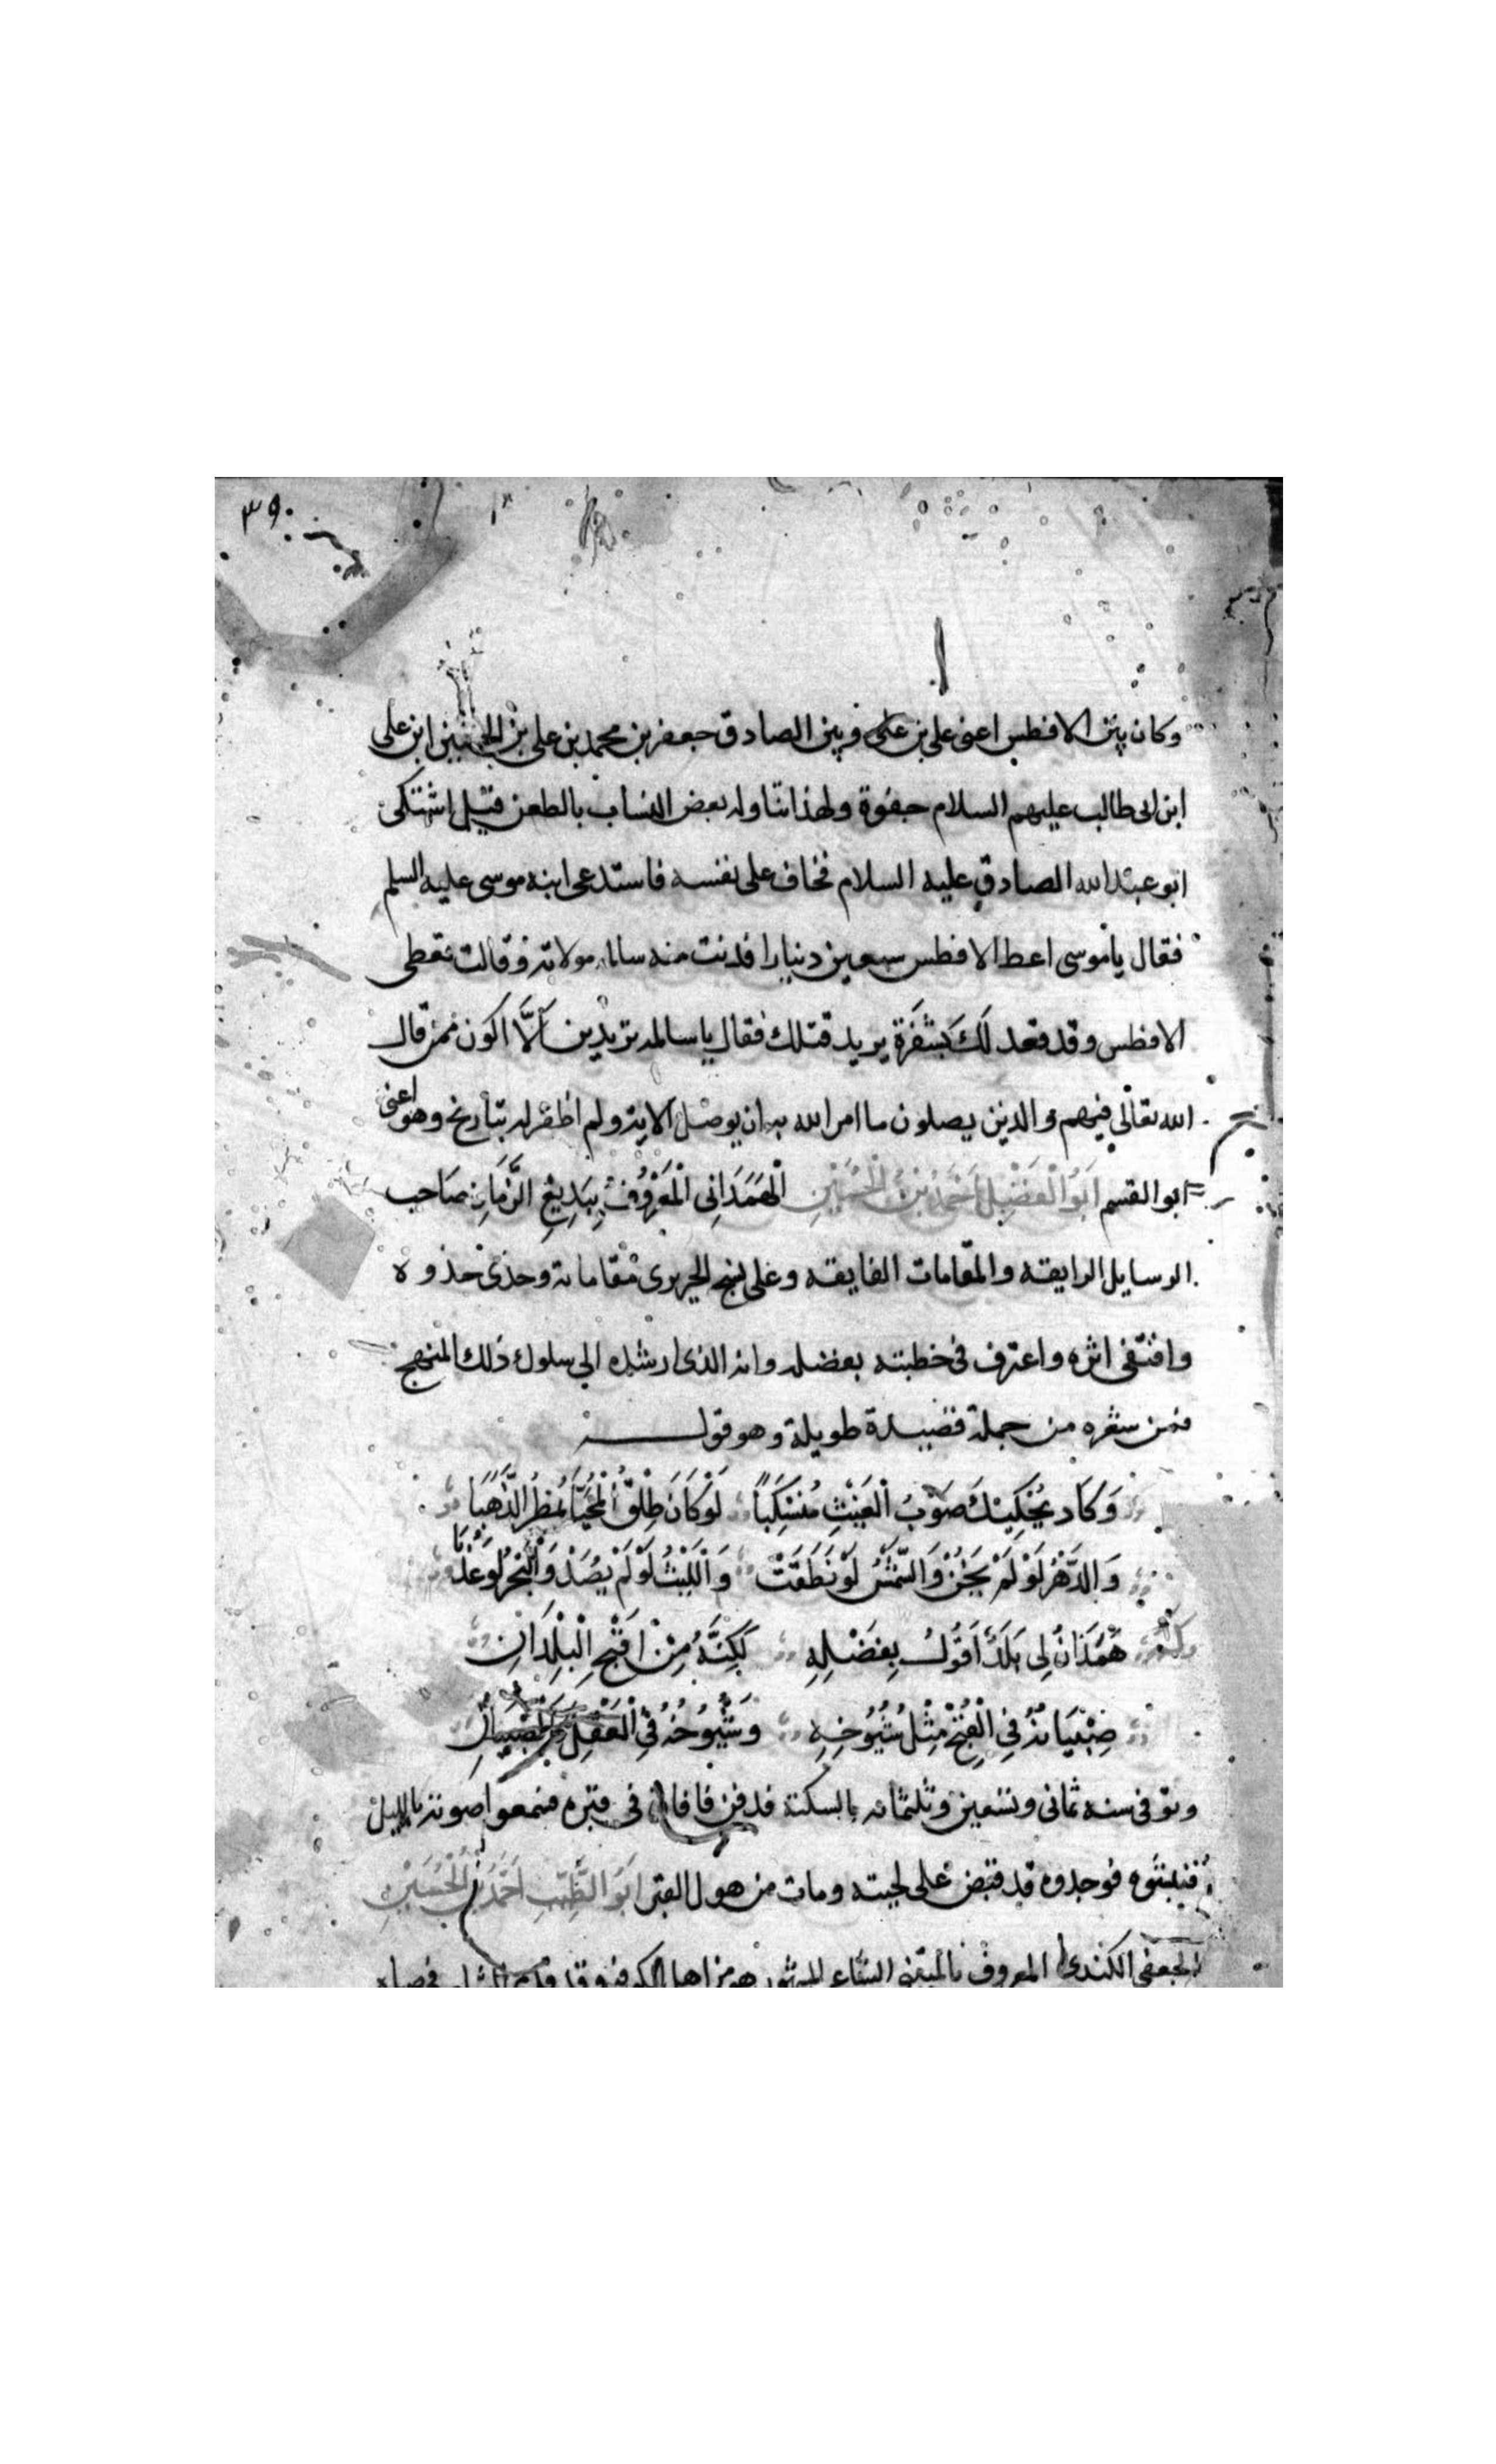 ٣٩٠
وكان بين الافطس اعنى على بن على وبين الصادق جعفر بن محمد بن على بن الحسين ابن على
ابن ابى طالب عليهم السلام جفوة ولهذا تناوله بعض النساب بالطعن قيل اشتكى
ابو عبد الله الصادق عليه السلام فخاف على نفسه فاستدعى ابنه موسى عليه السلم
فقال يا موسى اعط الافطس سبعين دينارا فدنت منه سالمه مولاته فقالت تعطى
الافطس وقد قعد لك بشفرة يريد قتلك فقال يا سالمه تريدين ألّا اكون ممن قال
الله تعالى فيهم والذين يصلون ما امر الله به ان يوصل الاية ولم اظفر له بتاريخ وهو اعنى
ابو القسم اَبُو الْفَضْلِ اَحْمَدُ بْنُ الْحُسَيْنِ الْهَمَدَانِى الْمَعْرُوفُ بِبَدِيْعِ الزَّمَانِ صَاحب
الرسايل الرايقه والمقامات الفايقه وعلى نهج الحريرى مقاماته وحذى حذوه
واقتفى اثره واعترف فى خطبته بفضله وانه الذى ارشده الى سلوك ذلك المنهج
فمن شعره من جملة قصيدة طويلة وهو قوله
وَكَاد يَحْكِيْكَ صَوْبُ الْغَيْثِ مُنْسَكِباً لَوْ كَانَ طلْقَ الْمُحَيَّا يُمْطِرُ الذَّهَبَا
وَالدَّهْرُ لَوْ لَمْ يَخُنْ وَالشَّمْسُ لَوْ نَطَقَتْ وَالْلَيْثُ لَوْ لَمْ يُصَدْ وَالْبَحْرُ لَوْ عَذُبَا
وله هَمَذَانُ لِى بَلَدٌ اَقُولُ بِفَضْلِهِ لَكِنَّهُ مِنْ اَقْبَحِ الْبُلْدَانِ
صِبْيَانُهُ فِى الْقُبْحِ مِثْلُ شُيُوْخِهِ وَشُيُوْخُهُ فِى الْعَقْلِ كَالصِّبْيَانِ
وتوفى سنه ثمانى وتسعين وثلثمائه بالسكته فدفن فافاق فى قبره فسمعوا صوته بالليل
فنبشوه فوجدوه قد قبض على لحيته ومات من هول القبر اَبُو الطَّيِّبِ اَحْمَدُ بْنُ الْحُسَيْنِ
الجعفى الكندى المعروف بالمتنبى الشاعر المشهور هو من اهل الكوفه وقدم الشام فى صباه